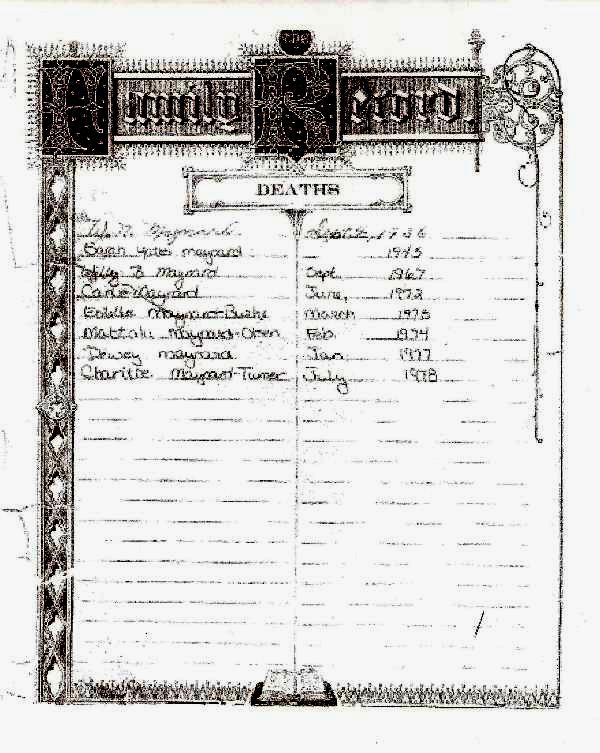 THE
Family Record.
DEATHS
W. Maynard. Sept 1936
Sarah Yates maynard 1945
B Maynard Sept 1967
Maynard June, 1972
Goldie Maynard-Burke March 1973
Mattalu Maynard-Olsen Feb. 1974
Dewey maynard Jan. 1977
Charitie Maynard-Turner July 1978